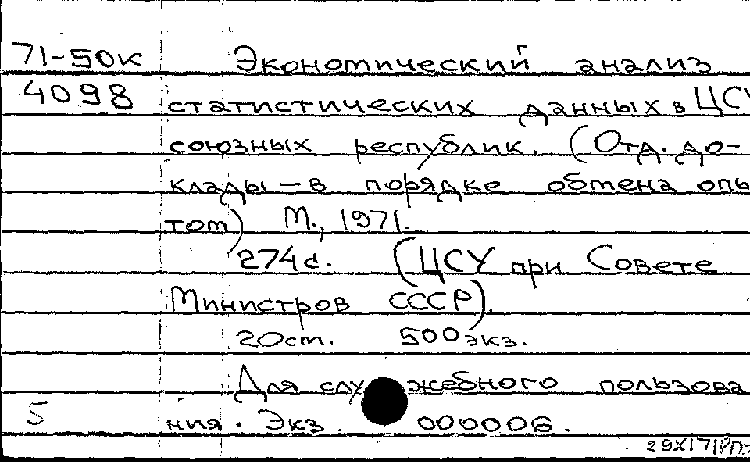 71-50к Экономический анализ
4098 статистических данных в ЦСУ
союзных республик. (Отд. до-
клады – в порядке обмена опы
том) М., 1971.
274с. (ЦСУ при Совете
Министров СССР).
20см. 500экз.
Для служебного пользова
5 ния. Экз. 000006.
29X171